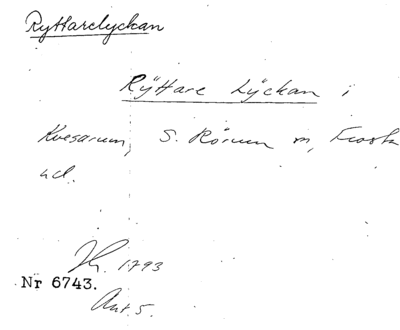 Ryttarelyckan
Ryttare Lyckan i
Kvesarum, S. Rörum sn, Frosta
hd.
1793
Nr 6743.
Akt 5.